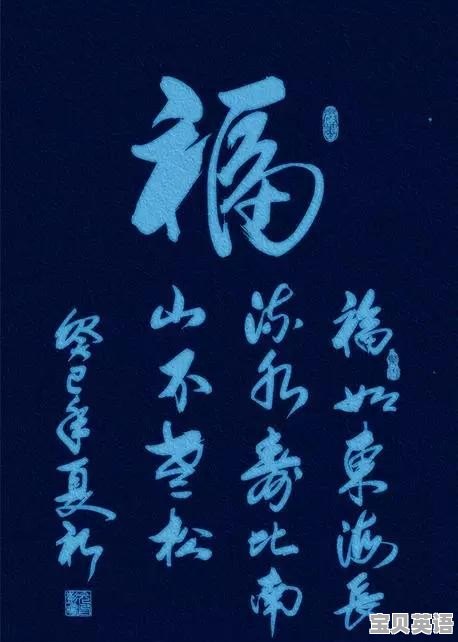 福
福如東海長
流水壽比南
山不老松
癸巳年夏
宝贝英语